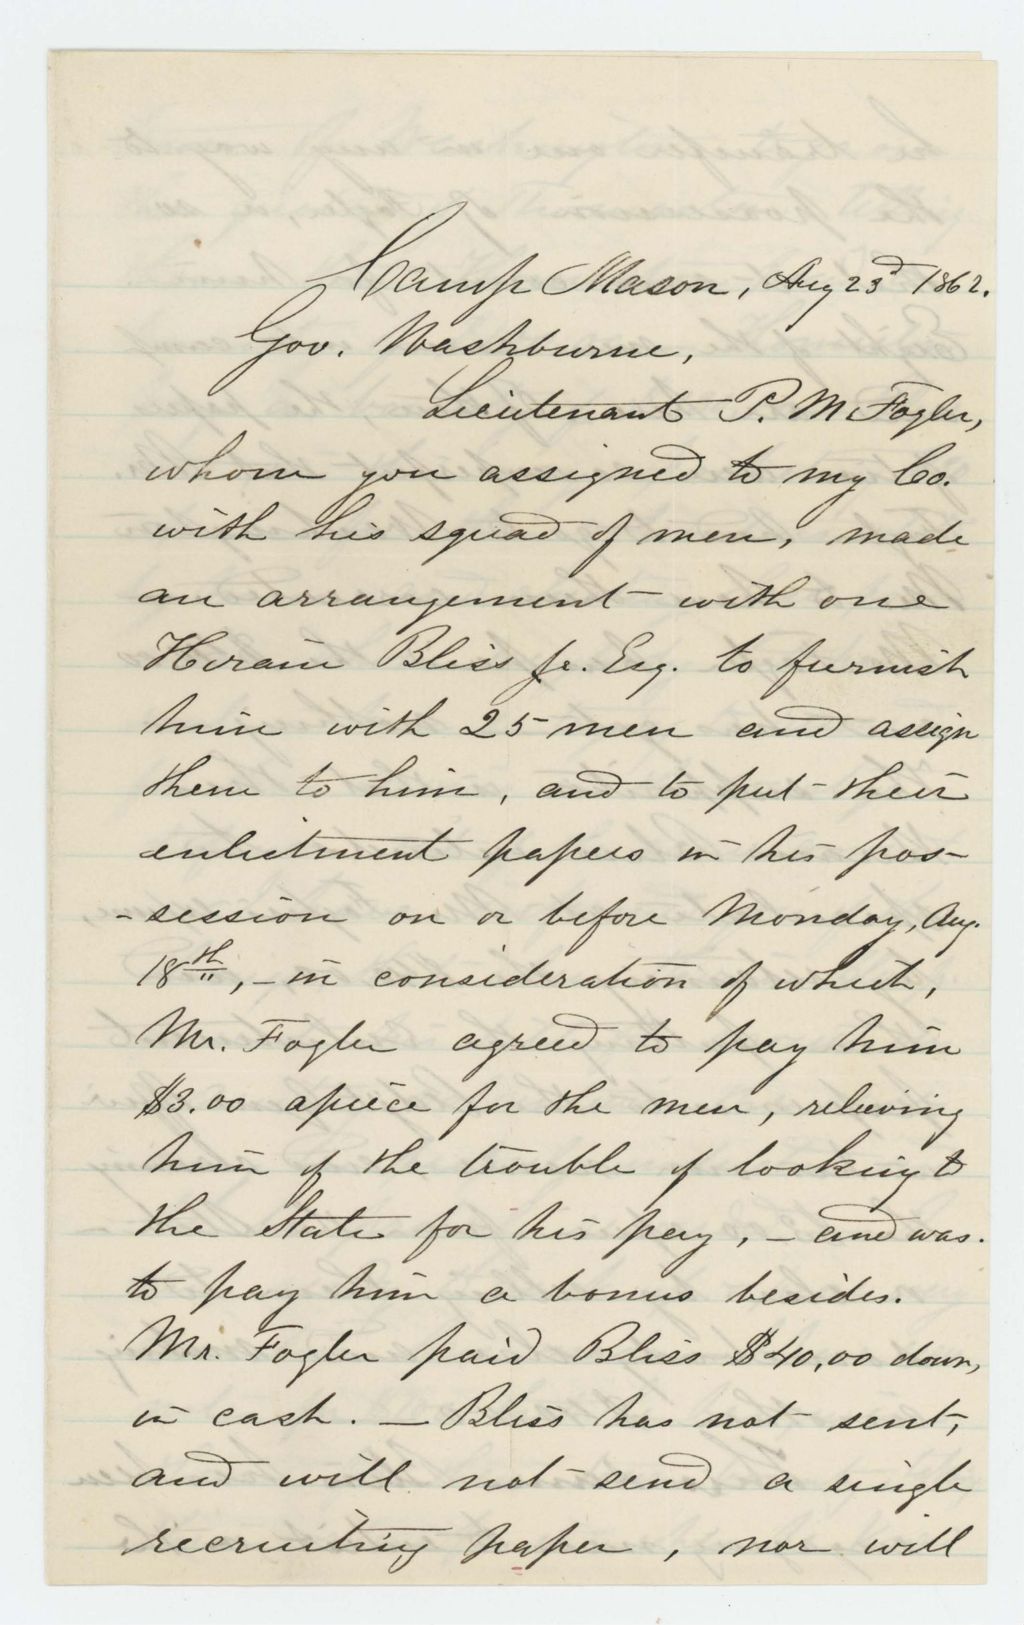 Camp Mason, Aug 23d 1862.
Gov. Washburne,
Lieutenant P. M Fogler,
whom you assigned to my Co.
with his squad of men, made
an arrangement with one
Hiram Bliss Jr. Esq. to furnish
him with 25 men and assign
them to him, and to put their
enlistment papers in his pos-
-session on or before Monday, Aug.
18th, - in consideration of which,
Mr. Fogler agreed to pay him
$3.00 apiece for the men, relieving
him of the trouble of looking to
the State for his pay, - and was.
to pay him a bonus besides.
Mr. Fogler paid Bliss $40,00 down,
in cash. — Bliss has not sent,
and will not send a single
recruiting paper, nor will